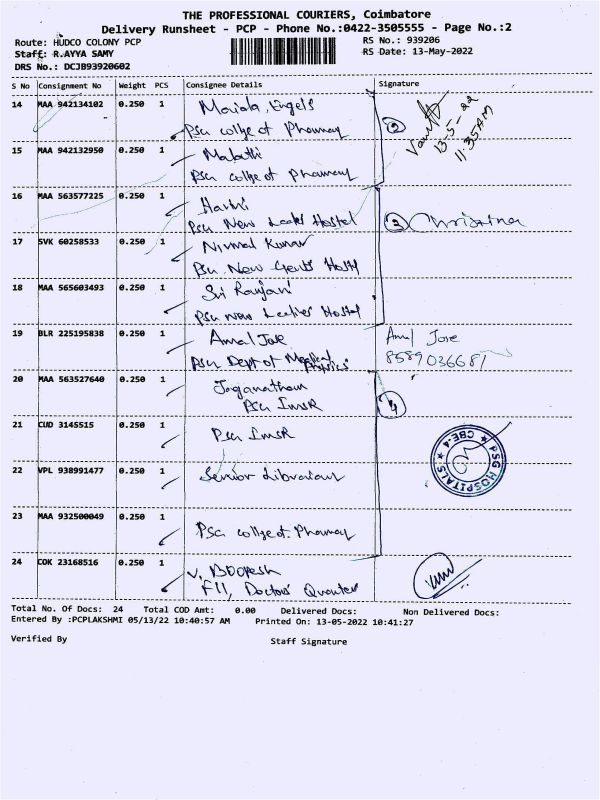 THE PROFESSIONAL COURIERS, Coimbatore
Delivery Runsheet - PCP - Phone No.:0422-3505555 - Page No.:2
Route: HUDCO COLONY PCP
RS No.: 939206
Staff: R.AYYA SAMY
RS Date: 13-May-2022
DRS No.: DCJB93920602
S No Consignment No Weight PCS Consignee Details Signature
14 MAA 942134102 0.250 1
PSG college of Pharmacy
2
13-5-22
11:35AM
15 MAA 942132950 0.250 1 Malathi
PSG college of pharmacy
16 MAA 563577225 0.250 1 Harini
PSG New Ladies Hostel
3 Christina
17 SVK 60258533 0.250 1 Nirmal Kumar
PSG New Gents Hostel
18 MAA 565603493 0.250 1 Sri Ranjani
PSG New Ladies Hostel
19 BLR 225195838 0.250 1 Amal Jose
PSG Dept of Medical Physics
Amal Jose
8589036687
20 MAA 563527640 0.250 1 Jaganathan
PSG IMSR
4
21 CUD 3145515 0.250 1 PSG IMSR
PSG HOSPITALS
CBE-4
22 VPL 938991477 0.250 1 Senior Librarian
23 MAA 932500049 0.250 1 PSG college of Pharmacy
24 COK 23168516 0.250 1 V. BOOPESH
F11, Doctors Quarters
Total No. Of Docs: 24 Total COD Amt: 0.00 Delivered Docs: Non Delivered Docs:
Entered By :PCPLAKSHMI 05/13/22 10:40:57 AM Printed On: 13-05-2022 10:41:27
Verified By Staff Signature